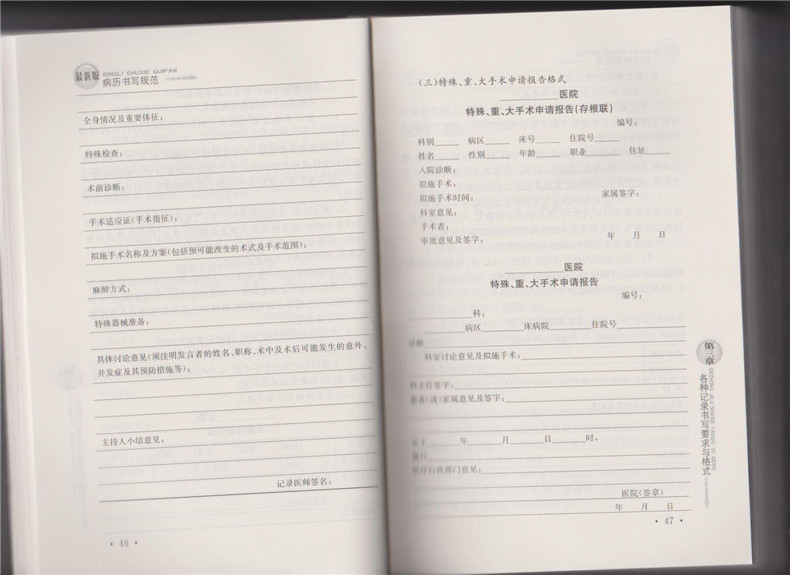 最新版
BINGLI SHUXIE GUIFAN
病历书写规范
全身情况及重要体征：
特殊检查：
术前诊断：
手术适应证(手术指征)：
拟施手术名称及方案(包括预可能改变的术式及手术范围)：
麻醉方式：
特殊器械准备：
具体讨论意见(须注明发言者的姓名、职称、术中及术后可能发生的意外、
并发症及其预防措施等)：
主持人小结意见：
记录医师签名：
· 46 ·
(三)特殊、重、大手术申请报告格式
医院
特殊、重、大手术申请报告(存根联)
编号：
科别 病区 床号 住院号
姓名 性别 年龄 职业 住址
入院诊断：
拟施手术：
拟施手术时间： 家属签字：
科室意见：
手术者：
审批意见及签字： 年 月 日
医院
特殊、重、大手术申请报告
编号：
科：
病区 床病院 住院号
诊断
科室讨论意见及拟施手术：
科主任签字：
患者(或)家属意见及签字：
定于 年 月 日 时，
施行
医疗行政部门意见：
医院(签章)
年 月 日
· 47 ·
第三章
各种记录书写要求与格式